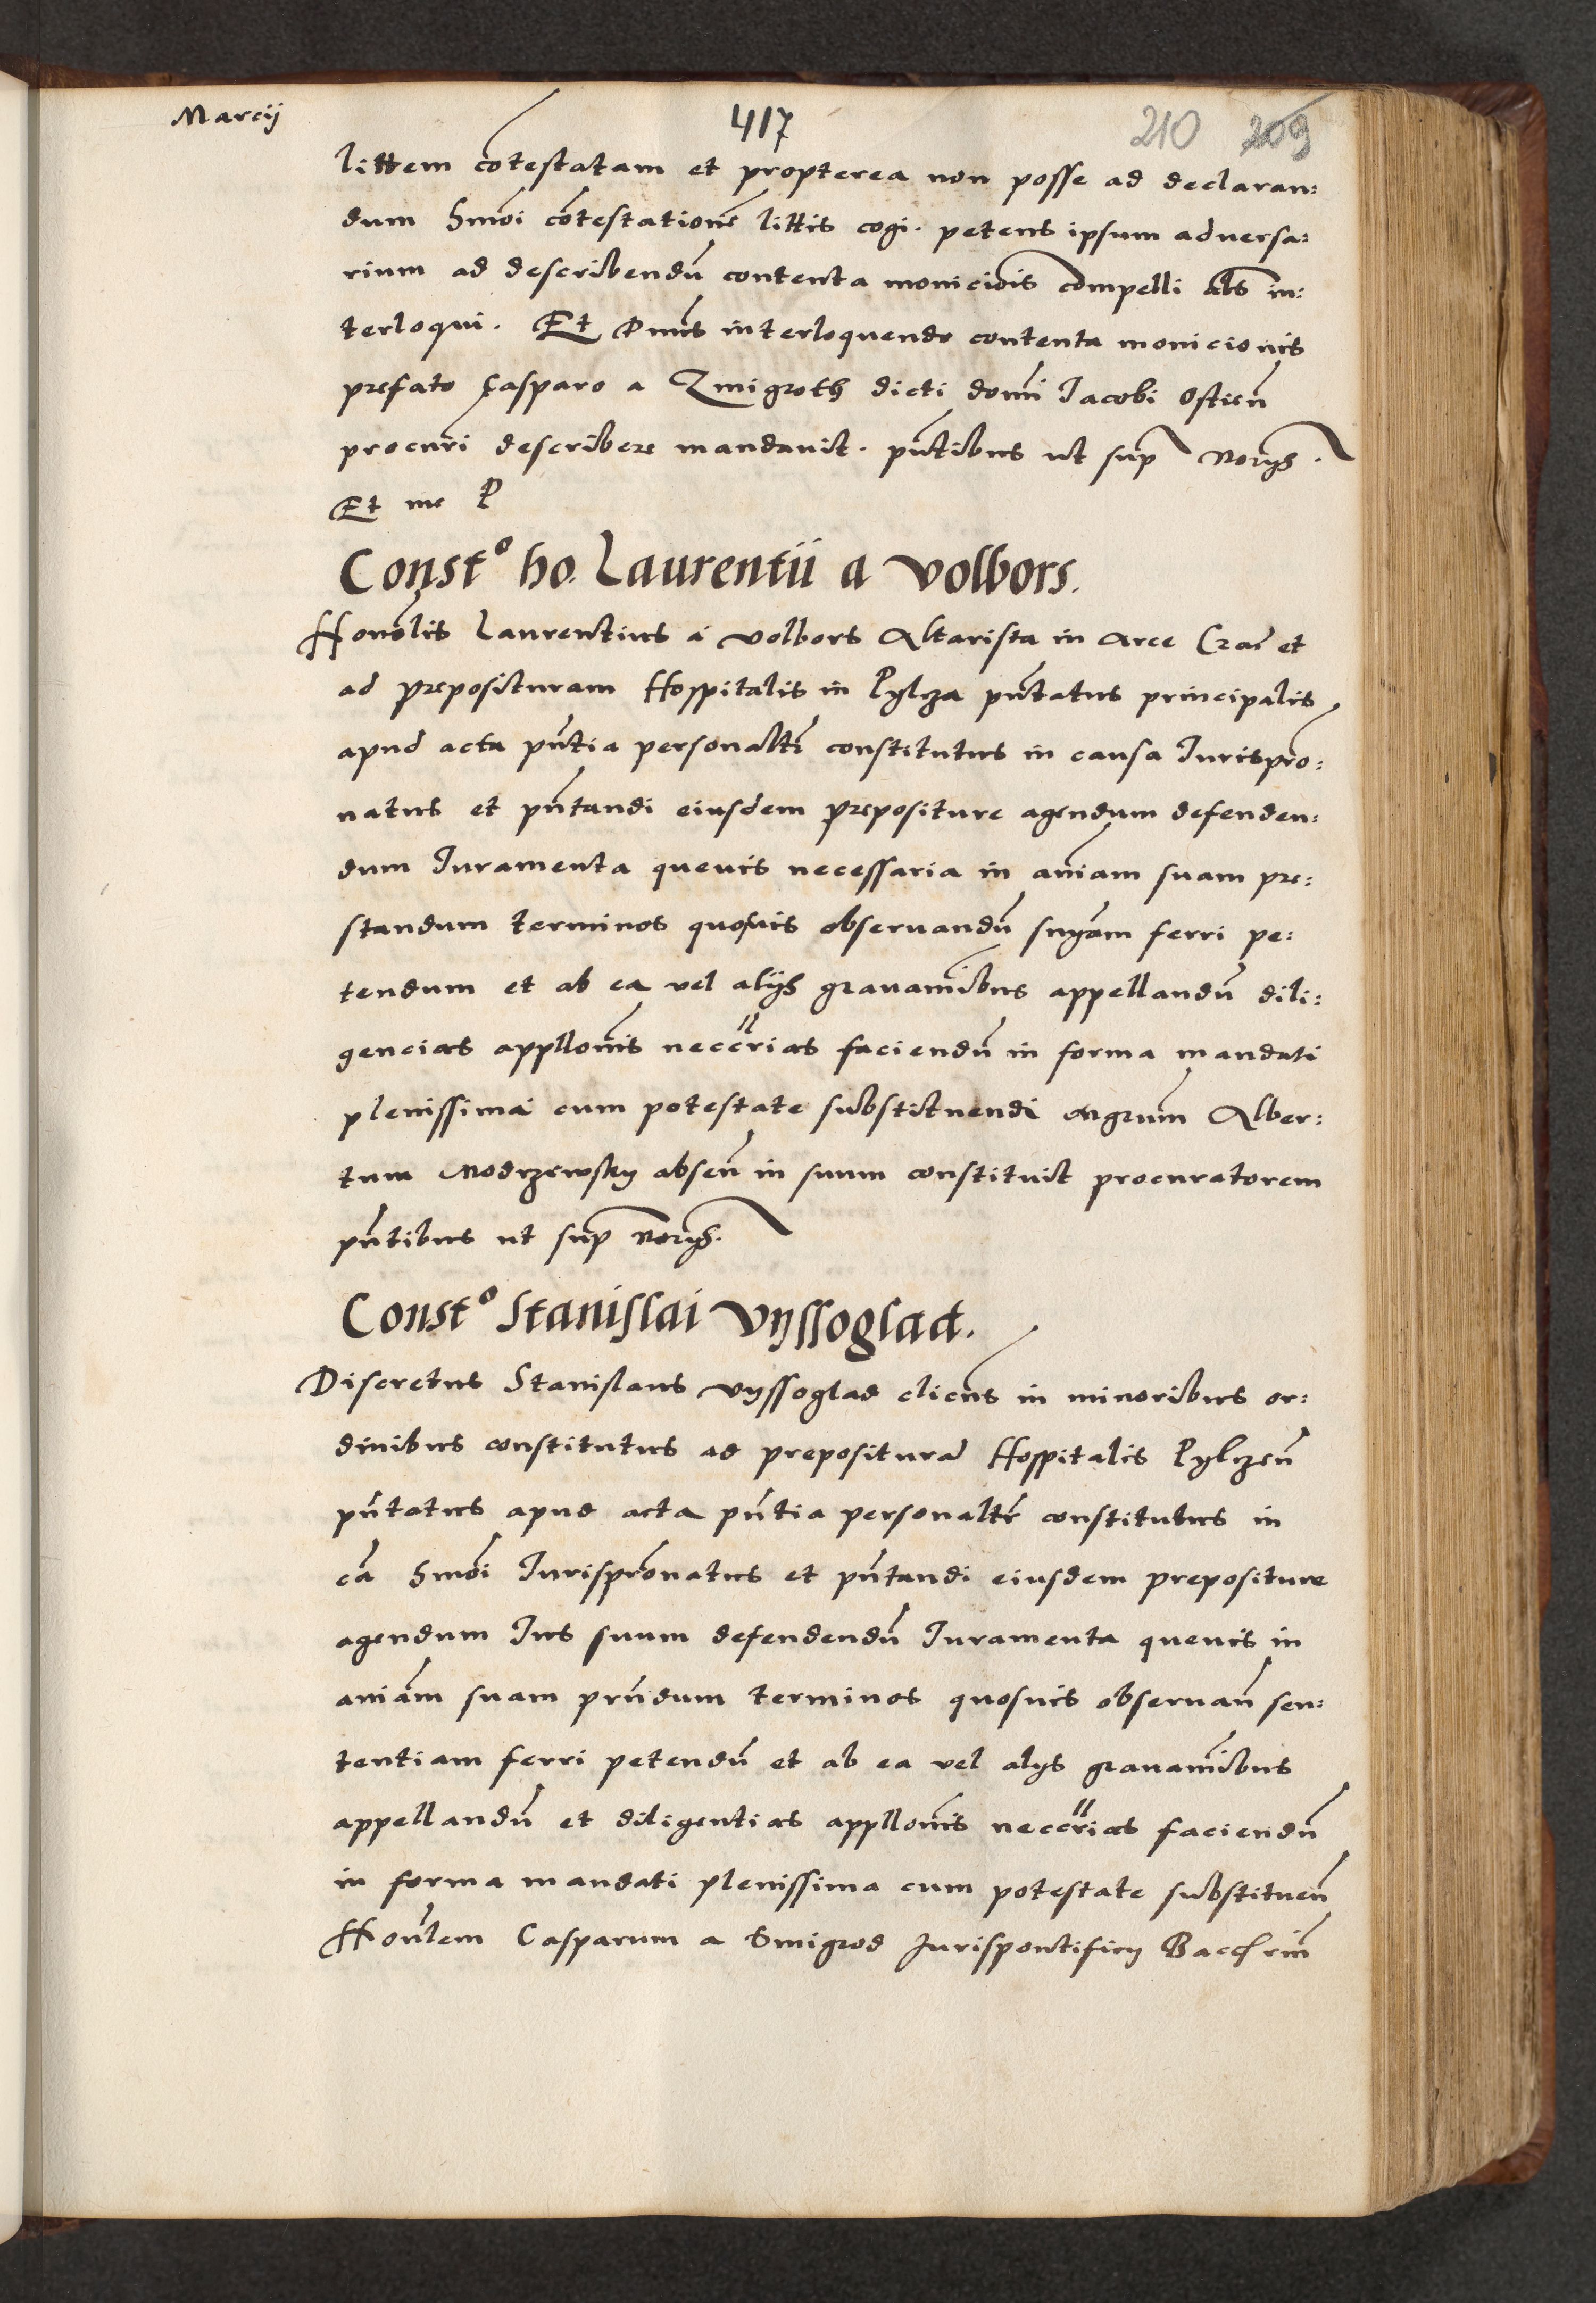 Marcij
417
210 209
littem cōtestatam et propterea non posse ad declaran:
dum hmōi cōtestationē littis cogi. petens ipsum adversa:
rium ad describendū contenta moniciōis compelli als in:
terloqui. Et Dnūs interloquendo contenta monicionis
prefato Casparo a Zmigroth dicti domī Jacobi Ostien̄
procurī describere mandavit. pn̄tibus ut sup norijs.
Et me P
Constº ho. Laurentii a Volbors.
Honōlis Laurentius a volbors Altarista in Arce Crac̄ et
ad preposituram Hospitalis in Pylcza pn̄tatus principalis
apud acta pn̄tia personaltr̄ constitutus in causa Jurispro:
natus et pn̄tandi eiusdem prepositure agendum defenden:
dum Juramenta quevis necessaria in aīam suam pre:
standum terminos quosvis observandū sniām ferri pe:
tendum et ab ea vel alijs gravamībus appellandū dili:
gencias appllonīs neccrīas faciendū in forma mandati
plenissima cum potestate substituendi Mgrūm Alber:
tum Modrzewsky absen̄ in suum constituit procuratorem
pn̄tibus ut sup norijs.
Constº Stanislai Vyssoglad.
Discretus Stanislaus Vyssoglad cliens in minoribus or:
dinibus constitutus ad prepositurā Hospitalis Pylczen̄
pn̄tatus apud acta pn̄tia personaltr̄ constitutus in
cā hmōi Jurisprōnatus et pn̄tandi eiusdem prepositure
agendum Jus suum defendendū Juramenta quevis in
aniām suam prn̄dum terminos quosvis observan̄ sen:
tentiam ferri petendū et ab ea vel alijs gravamībus
appellandū et diligentias appllonīs neccrīas faciendū
in forma mandati plenissima cum potestate substituen̄
Honlēm Casparum a Smigrod Jurispontificij Bacchrīm